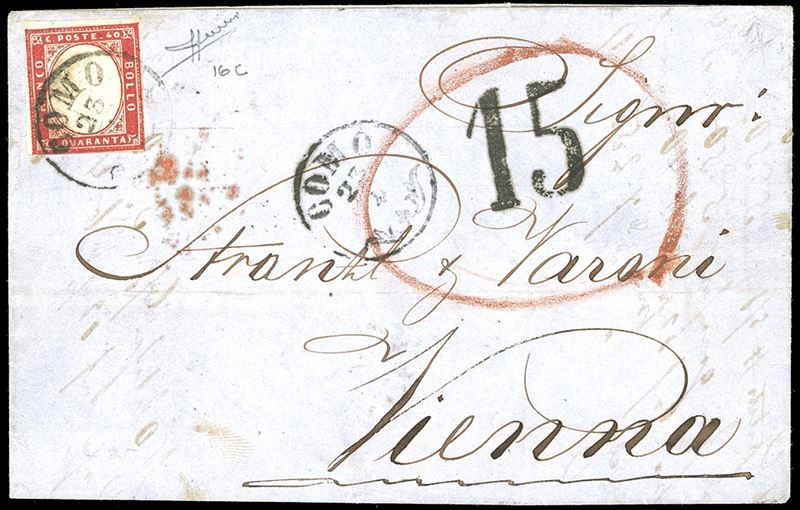 C. POSTE. 40
FRANCO
BOLLO
QUARANTA
COMO
23
16 C
COMO
23
15
Signori
Strankl & Varoni
Vienna